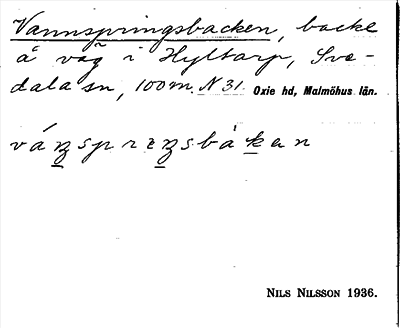 Vannspringsbacken, backe
å väg i Hyltarp, Sve-
dala sn, 100 m N 31. Oxie hd, Malmöhus län.
NILS NILSSON 1936.